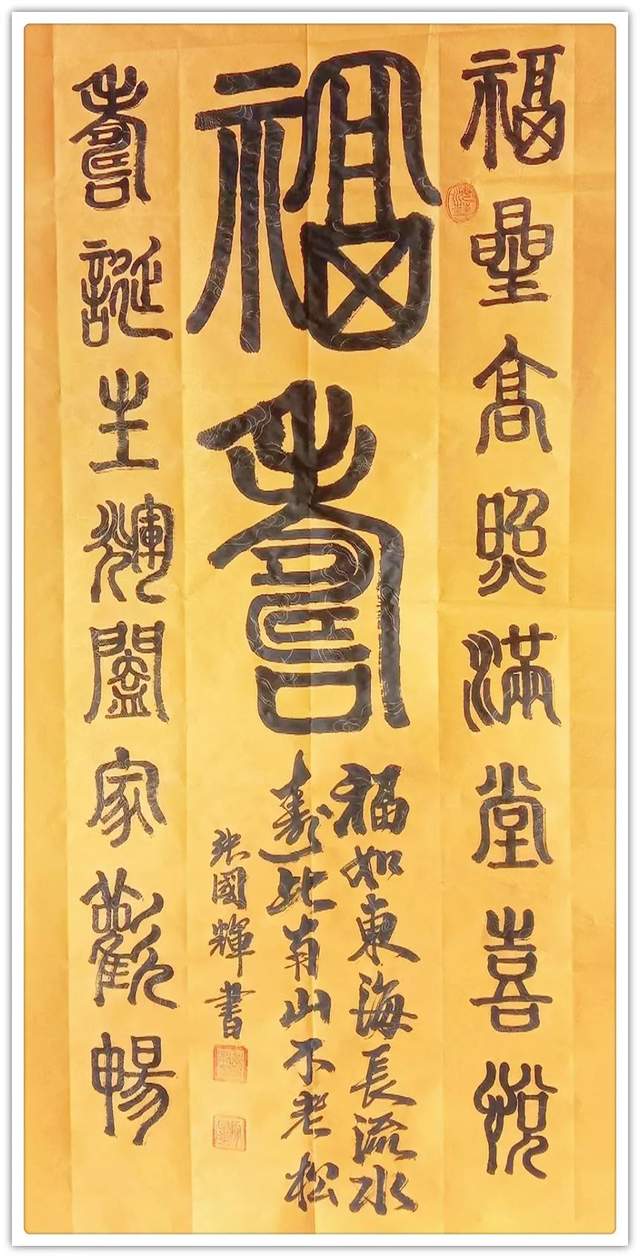 福星高照滿堂喜悅
福壽
福如東海長流水
壽比南山不老松
張國輝書
壽誕生輝闔家歡暢